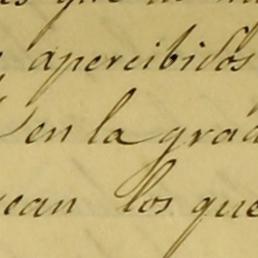 que
apercibidos
en la grad
ean los que